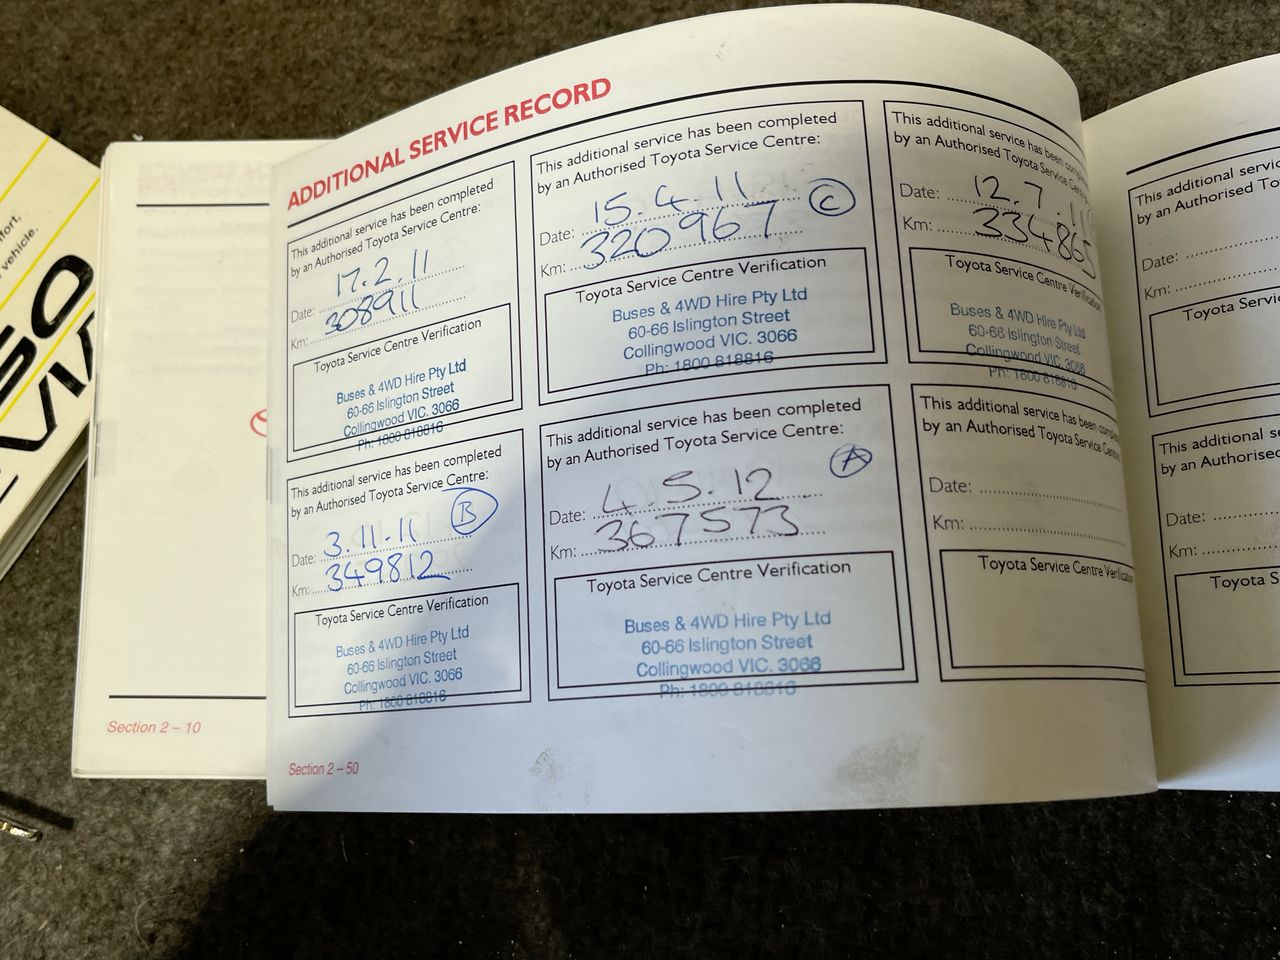 ADDITIONAL SERVICE RECORD
This additional service has been completed
by an Authorised Toyota Service Centre:
Date: 17.2.11
Km: 308911
Toyota Service Centre Verification
Buses & 4WD Hire Pty Ltd
60-66 Islington Street
Collingwood VIC. 3066
Ph: 1800 818816
This additional service has been completed
by an Authorised Toyota Service Centre:
C
Date: 15.4.11
Km: 320967
Toyota Service Centre Verification
Buses & 4WD Hire Pty Ltd
60-66 Islington Street
Collingwood VIC. 3066
Ph: 1800 818816
This additional service has been
by an Authorised Toyota Service
Date: 12.7.11
Km: 334865
Toyota Service Centre
Buses & 4WD Hire Pty Ltd
60-66 Islington Street
Collingwood VIC. 3066
Ph: 1800 818816
This additional service has been completed
by an Authorised Toyota Service Centre:
B
Date: 3.11.11
Km: 349812
Toyota Service Centre Verification
Buses & 4WD Hire Pty Ltd
60-66 Islington Street
Collingwood VIC. 3066
Ph: 1800 818816
This additional service has been completed
by an Authorised Toyota Service Centre:
A
Date: 4.5.12
Km: 367573
Toyota Service Centre Verification
Buses & 4WD Hire Pty Ltd
60-66 Islington Street
Collingwood VIC. 3066
Ph: 1800 818816
This additional service has been
by an Authorised Toyota Service
Date:
Km:
Toyota Service Centre
Section 2 – 50
Section 2 – 10
This additional
by an Authorised
Date:
Km:
Toyota
This additional
by an Authorised
Date:
Km:
Toyota
vehicle.